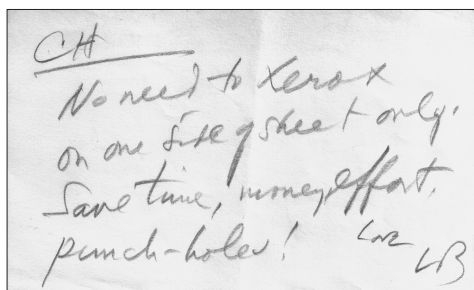 CH
No need to Xerox
on one side of sheet only.
Save time, money, effort,
punch-holes!
Love
LB